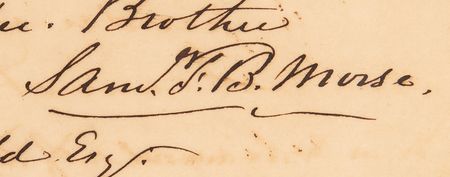 Brother
Sam. F. B. Morse.
Esq.